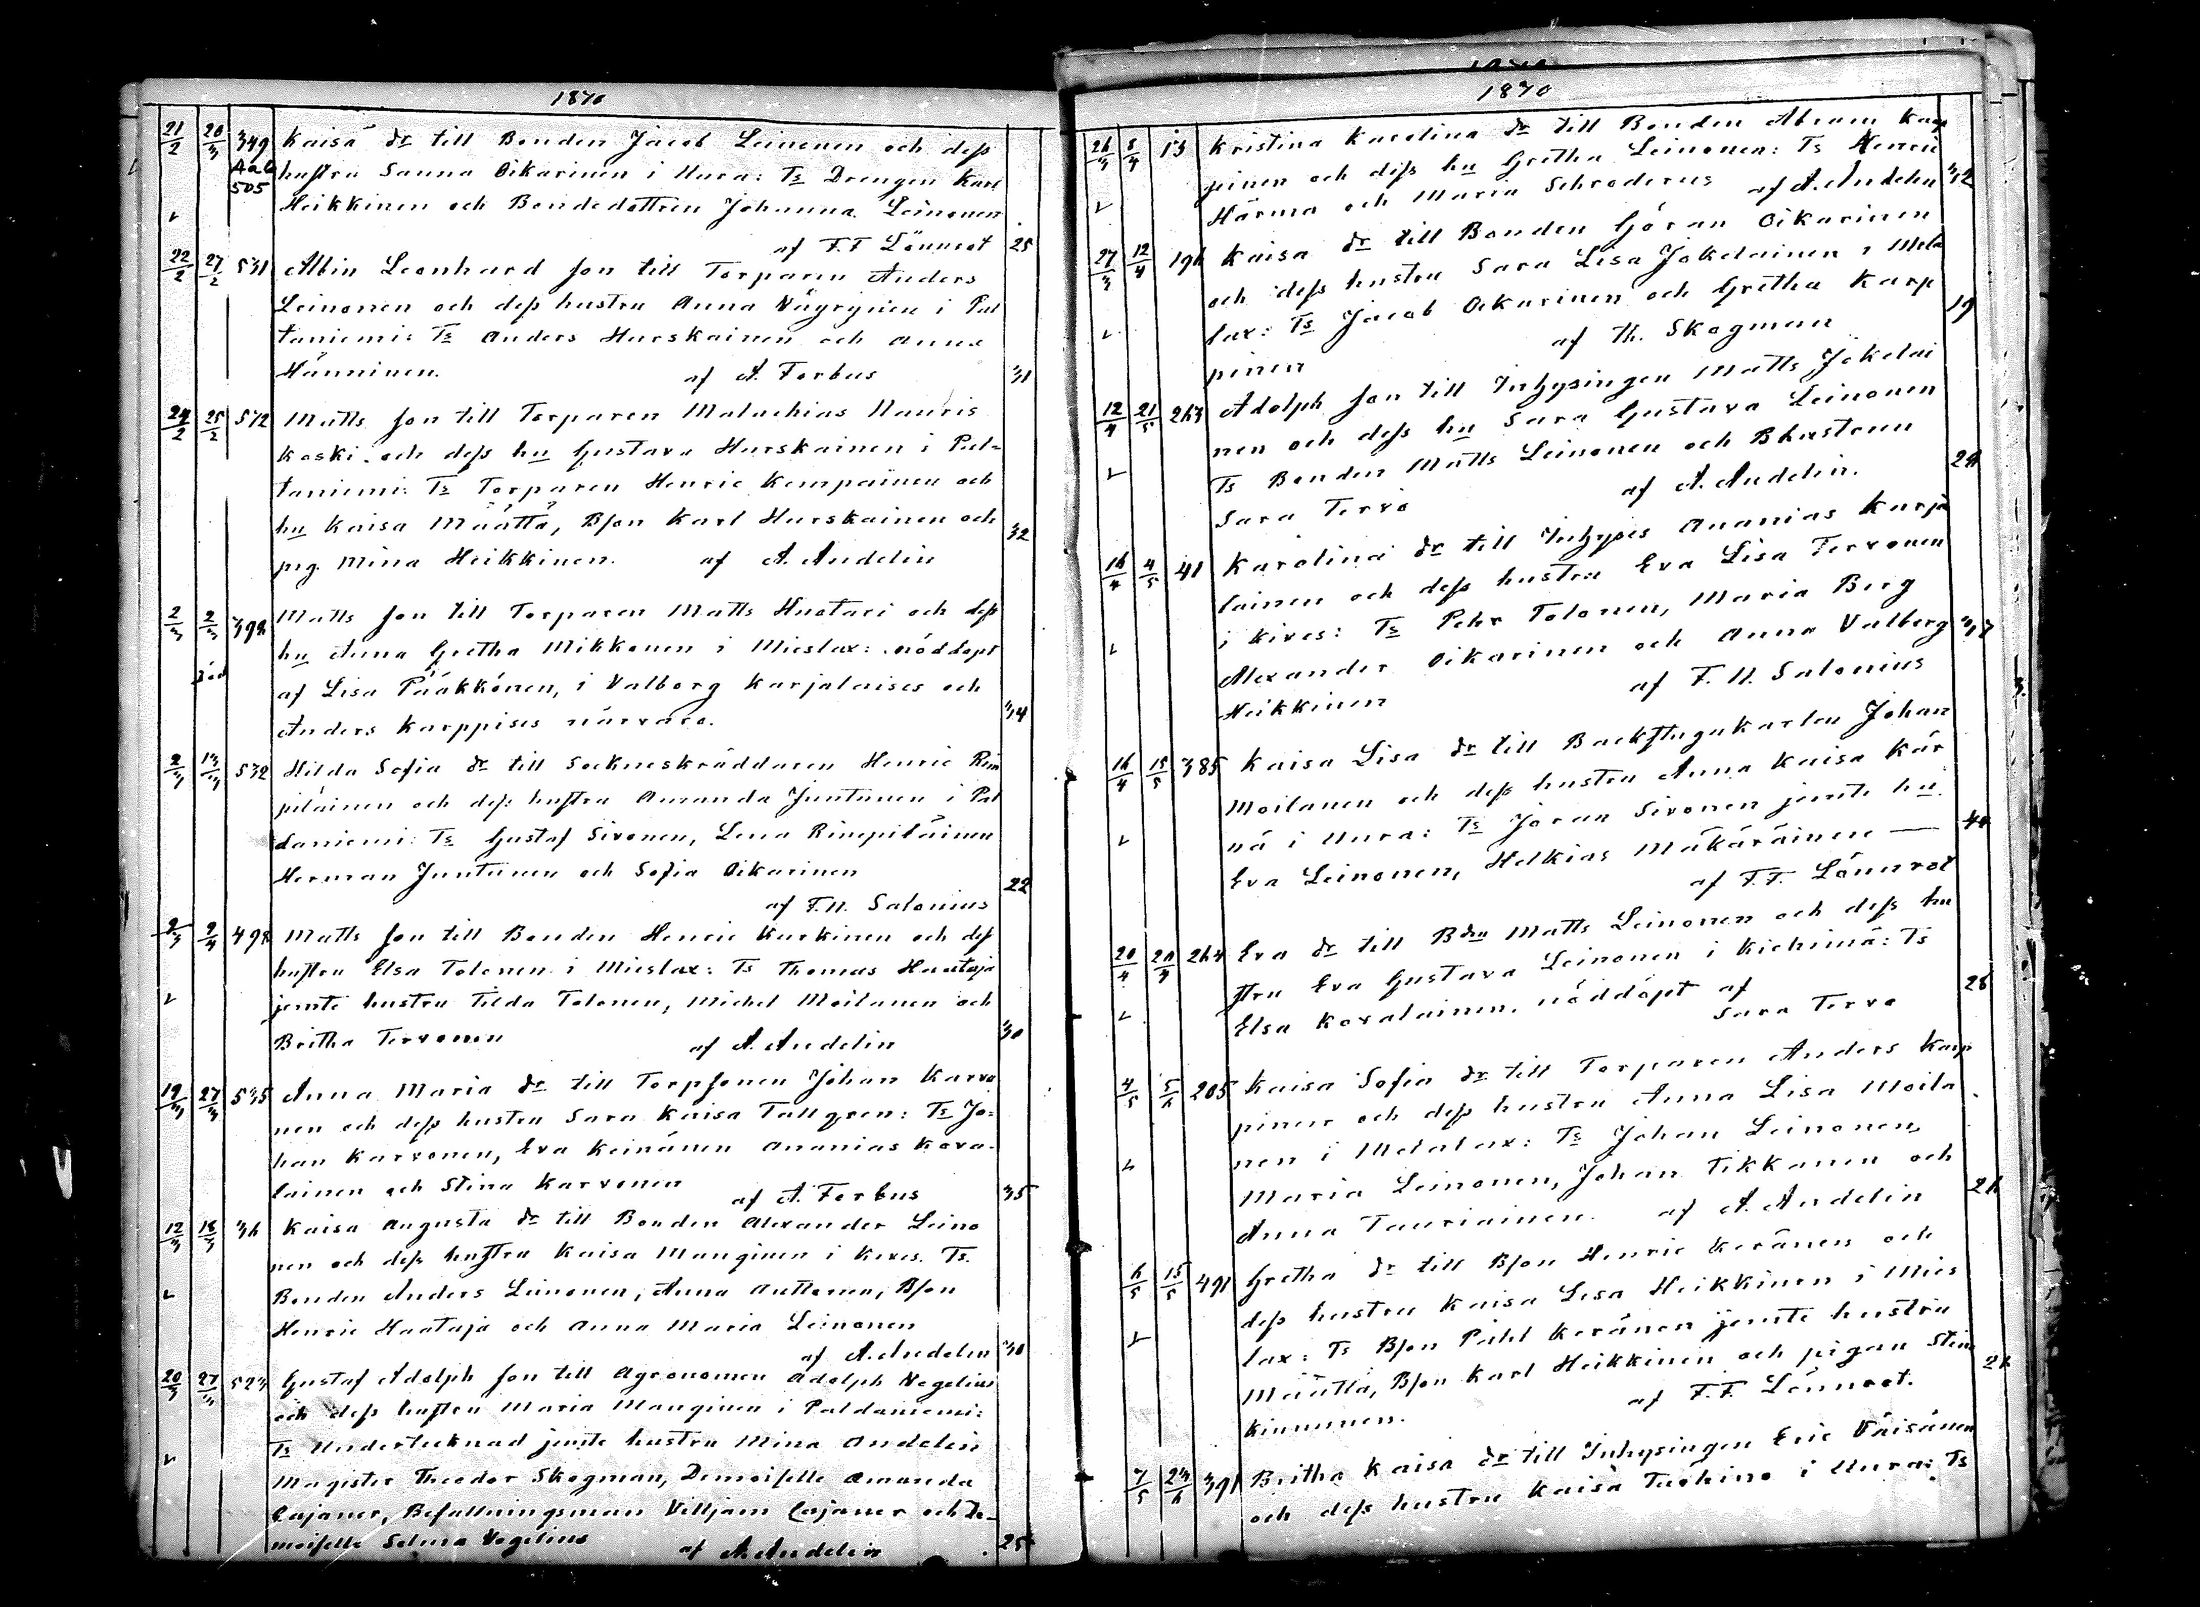 1870
21/2 20/3 349 Kaisa dr till Bonden Jacob Leinonen och dess
Aala 505 hustru Sanna Oikarinen i Uura: Ts Drengen Karl
Heikkinen och Bondedottren Johanna Leinonen
af F.F Lönnrot 25
22/2 27/2 531 Albin Leonhard son till Torparen Anders
Leinonen och dess hustru Anna Väyrynen i Pal
taniemi: Ts Anders Hurskainen och Anna
Hänninen. af A. Forbus 31
24/2 25/2 512 Matts son till Torparen Malachias Nauris
koski och dess hu Gustava Hurskainen i Pal=
taniemi: Ts Torparen Henric Kempainen och
hu Kaisa Määttä, Bson Karl Hurskainen och 32
pig. Mina Heikkinen. af A. Andelin
2/3 2/3 398 Matts son till Torparen Matts Huotari och dess
hu Anna Gretha Mikkonen i Mieslax: nöddöpt
af Lisa Pääkkönen, i Valborg Karjalaises och
Anders Karppises närvaro. 34
2/3 13/3 532 Hilda Sofia dr till Sockneskräddaren Henric Rim
piläinen och dess hustru Amanda Juntunen i Pal
daniemi: Ts Gustaf Sivonen, Lena Rimpiläinen
Herman Juntunen och Sofia Oikarinen 22
af F.N. Salonius
2/3 9/4 498 Matts son till Bonden Henric Kurkinen och dess
hustru Elsa Tolonen i Mieslax: Ts Thomas Haataja
jemte hustru Tilda Tolonen, Michel Moilanen och
Britha Tervonen af A. Andelin 30
19/3 27/3 535 Anna Maria dr till Torpsonen Johan Karvo
nen och dess hustru Sara Kaisa Tallgren: Ts Jo=
han Karvonen, Eva Keinänen Ananias Kova-
lainen och Stina Karvonen af A. Forbus 35
12/3 18/3 36 Kaisa Augusta dr till Bonden Alexander Leino
nen och dess hustru Kaisa Manginen i Kives. Ts.
Bonden Anders Leinonen, Anna Anttonen, Bson
Henric Haataja och Anna Maria Leinonen
af A. Andelin 30
20/3 27/3 523 Gustaf Adolph son till Agronomen Adolph Vegelius
och dess hustru Maria Manginen i Paldaniemi:
Ts Undertecknad jemte hustru Mina Andelin
Magister Theodor Skogman, Demoiselle Amanda
Cajaner, Befallningsman Villjam Cajaner och De-
moiselle Selma Vegelius af A. Andelin 25
1870
26/3 8/4 13 Kristina Karolina dr till Bonden Abram Karp
pinen och dess hu Gretha Leinonen: Ts Henric
Härmä och Maria Schroderus af A. Andelin 32
27/3 12/4 196 Kaisa dr till Bonden Göran Oikarinen
och dess hustru Sara Lisa Jokelainen i Mela
lax: Ts Jacob Oikarinen och Gretha Karp 19
pinen af Th. Skogman
12/4 21/5 263 Adolph son till Inhysingen Matts Jokelai
nen och dess hu Sara Gustava Leinonen
Ts Bonden Matts Leinonen och Bhustrun 24
Sara Tervo af A. Andelin.
16/4 4/5 41 Karolina dr till Inhyses Ananias Karja
lainen och dess hustru Eva Lisa Tervonen
i Kives: Ts Pehr Tolonen, Maria Berg
Alexander Oikarinen och Anna Valborg 37
Heikkinen af F.N. Salonius
16/4 15/5 385 Kaisa Lisa dr till Backstugukarlen Johan
Moilanen och dess hustru Anna Kaisa Kär
nä i Uura: Ts Jöran Sivonen jemte hu
Eva Leinonen, Helkias Mäkäräinen —
af F.F. Lönnrot
20/4 264 Eva dr till Bdn Matts Leinonen och dess hu
stru Eva Gustava Leinonen i Kiehimä: Ts
Elsa Kovalainen. nöddöpt af 26
Sara Tervo
4/5 5/6 205 Kaisa Sofia dr till Torparen Anders Karp
pinen och dess hustru Anna Lisa Moila
nen i Melalax: Ts Johan Leinonen,
Maria Leinonen, Johan Tikkanen och
Anna Tauriainen. af A. Andelin 26
6/5 15/5 491 Gretha dr till Bson Henric Keränen och
dess hustru Kaisa Lisa Heikkinen i Mies
lax: Ts Bson Påhl Keränen jemte hustru
Määttä, Bson Karl Heikkinen och pigan Stina
Kinnunen. af F.F. Lönnrot. 26
7/5 23/6 391 Britha Kaisa dr till Inhysingen Eric Väisänen
och dess hustru Kaisa Tuohino i Uura: Ts